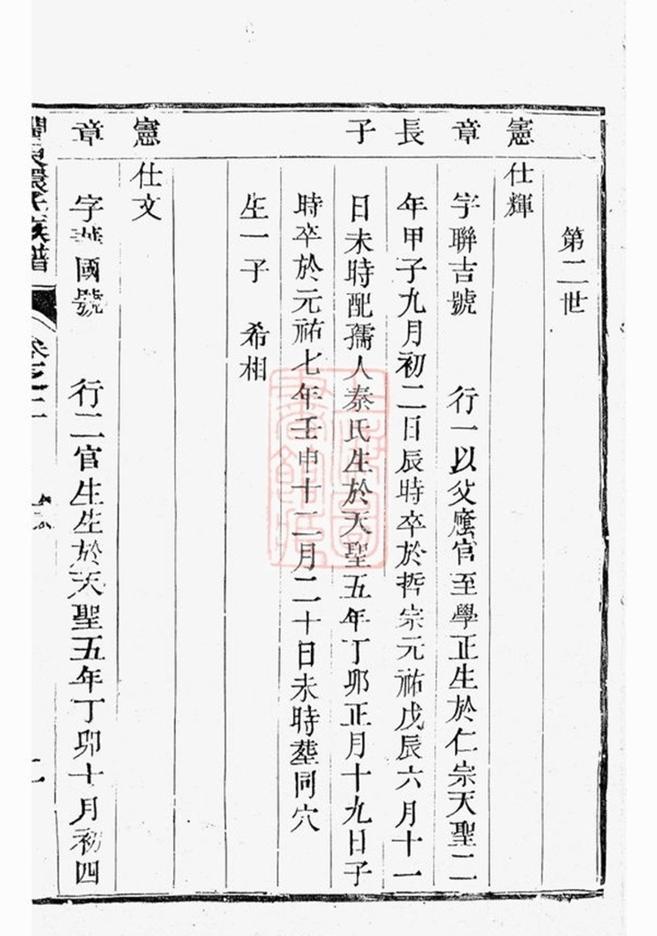 第二世
憲 仕輝
章 字聯吉號 行一以父廕官至學正生於仁宗天聖二
長 年甲子九月初二日辰時卒於哲宗元祐戊辰六月十一
子 日未時配孺人秦氏生於天聖五年丁卯正月十九日子
時卒於元祐七年壬申十二月二十日未時塟同穴
生一子 希相
憲 仕文
章 字華國號 行二官生生於天聖五年丁卯十月初四
族譜 卷之二